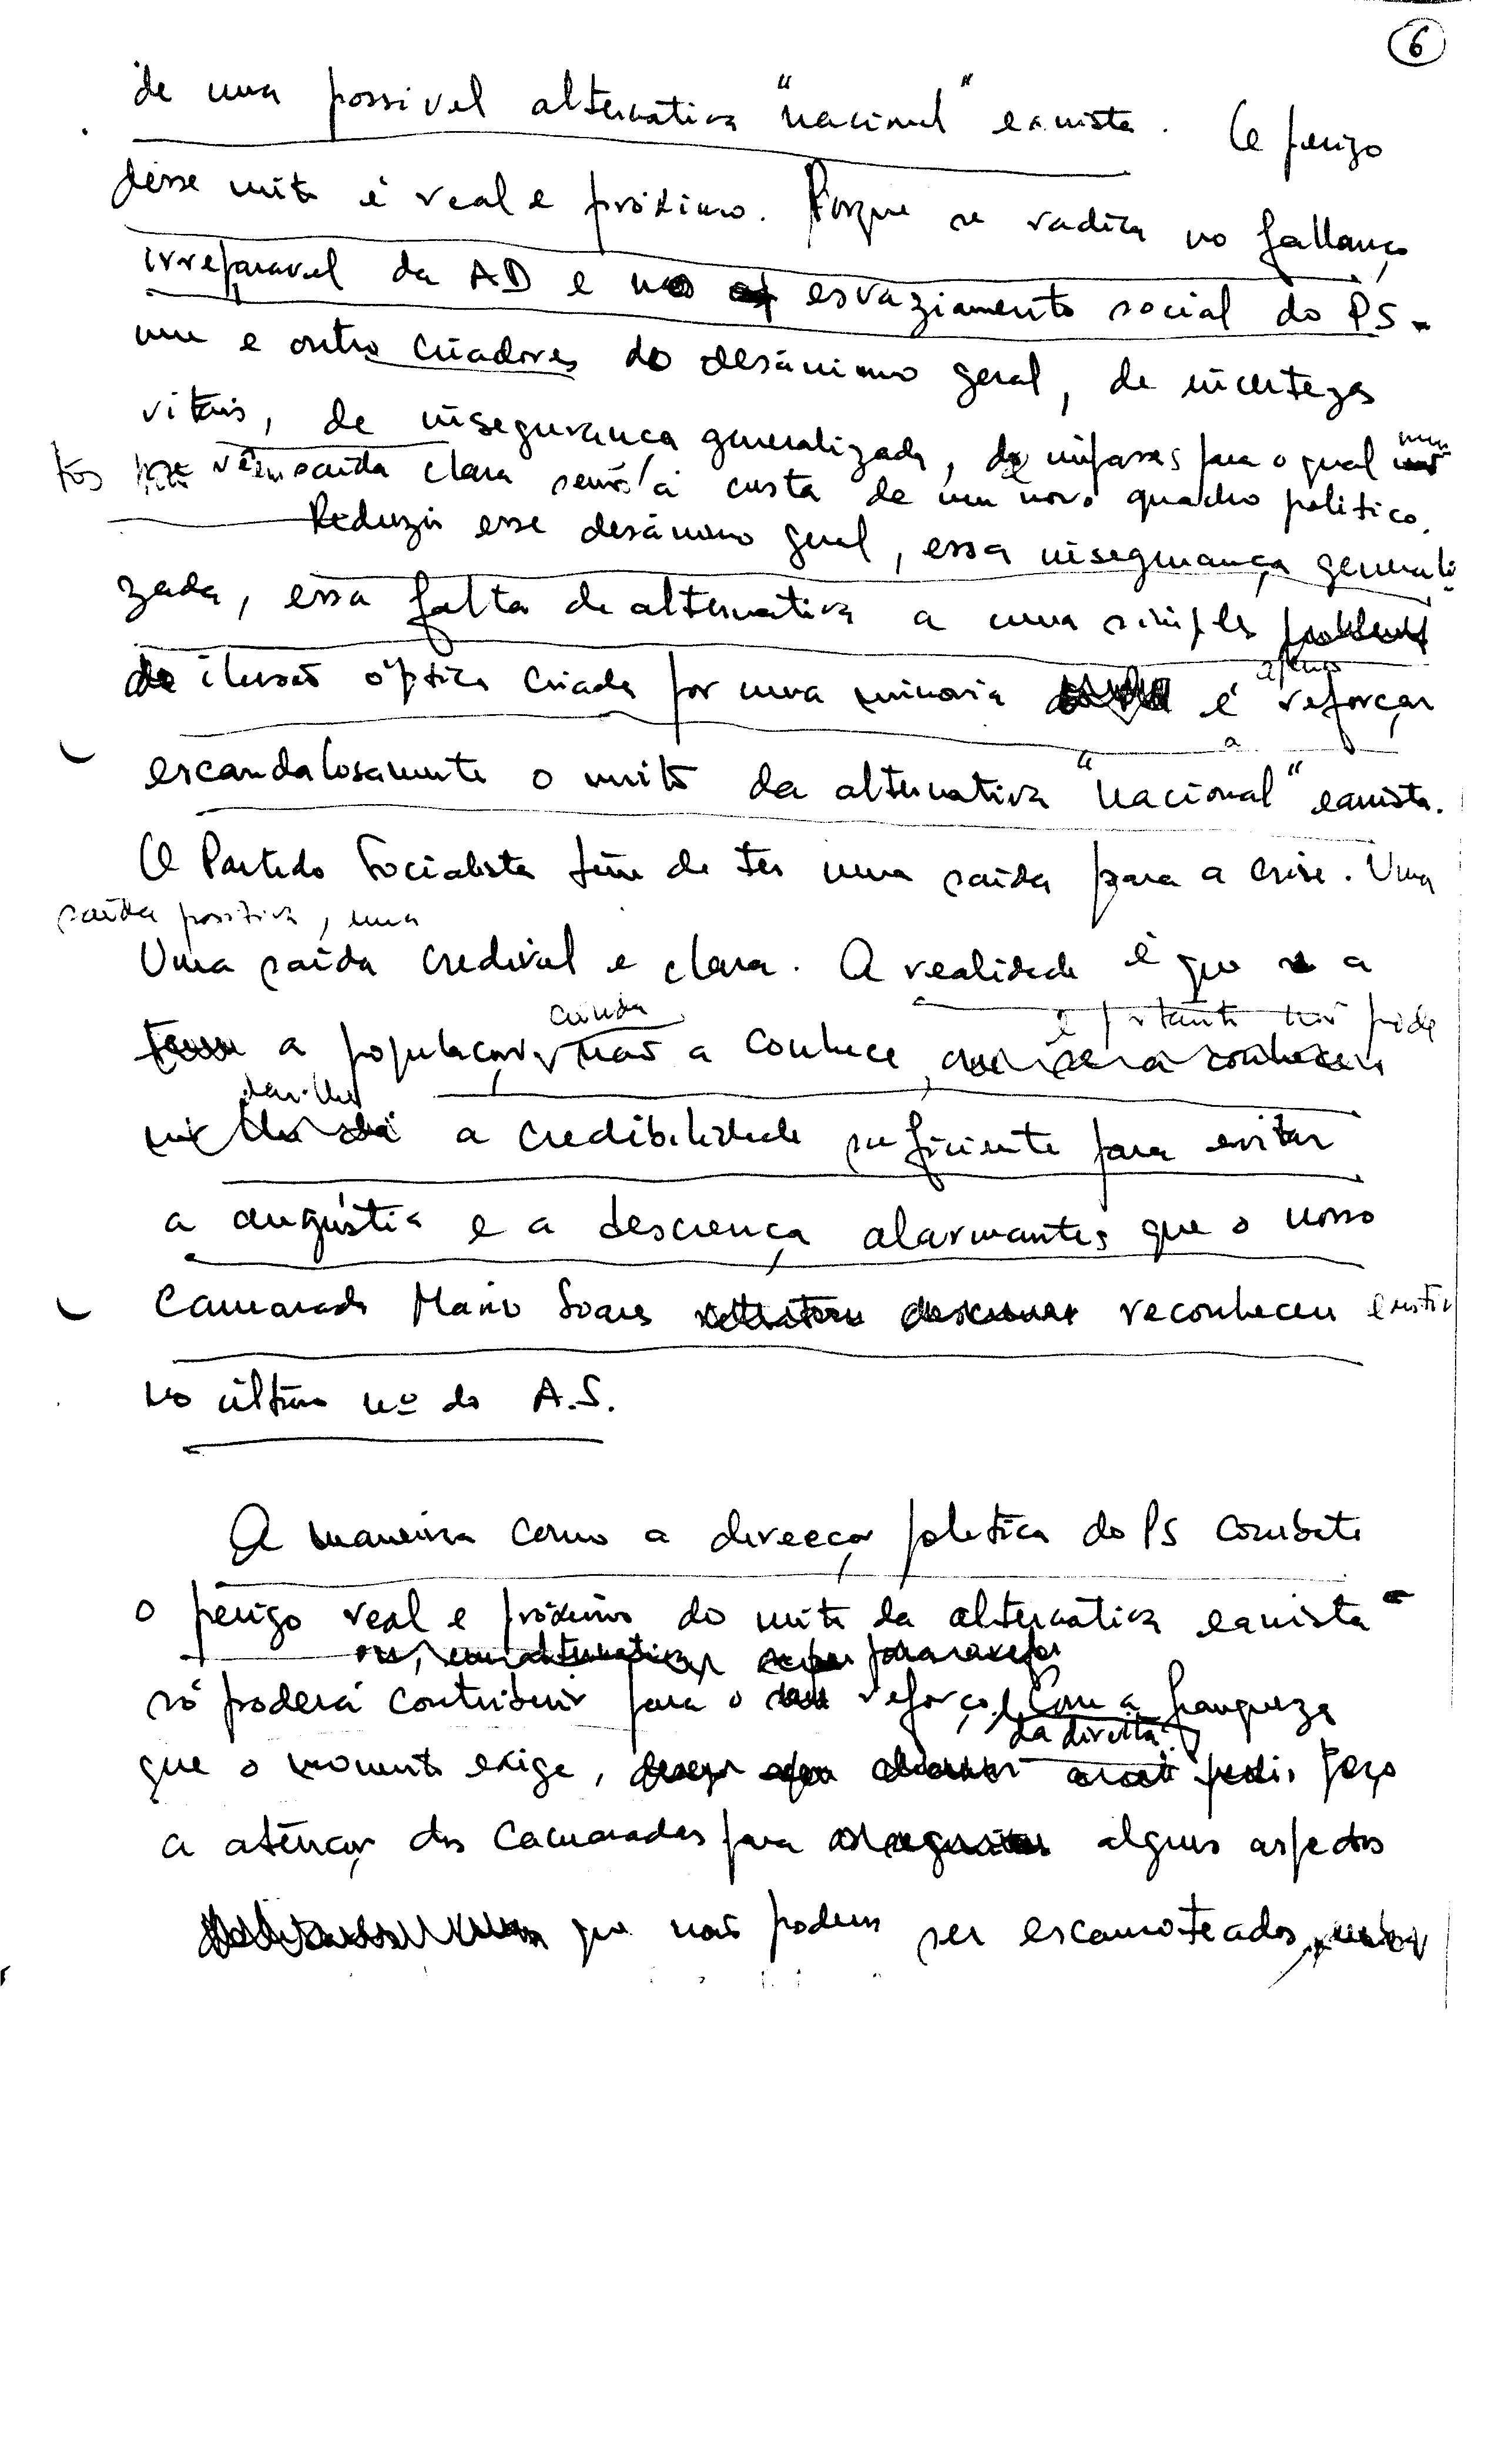 6
de uma possivel alternativa "nacional" eanista. O perigo
desse mito é real e próximo. Porque se radica no falhanço
irreparavel da AD e no esvaziamento social do PS -
um e outro criadores do desânimo geral, de incertezas
vitais, de insegurança generalizada, de impasses para o qual
vêem saída clara senão à custa de um novo quadro politico.
Reduzir esse desânimo geral, essa insegurança generali-
zada, essa falta de alternativa a uma simples
ilusão óptica criada por uma minoria é apenas reforçar
escandalosamente o mito da alternativa "nacional" eanista.
O Partido Socialista tem de ter uma saída para a crise. Uma
saída positiva, uma
Uma saída credivel e clara. A realidade é que a
ainda e portanto não pode
a população não a conhece,
dar-lhe a credibilidade suficiente para evitar
a angústia e a descrença alarmantes que o nosso
Camarada Mário Soares reconheceu existir
no último nº do A.S.
A maneira como a direcção politica do PS combate
o perigo real e próximo do mito da alternativa eanista
só poderá contribuir para o reforço. Com a franqueza
da direita
que o momento exige, peço
a atenção dos Camaradas para alguns aspectos
que não podem ser escamoteados